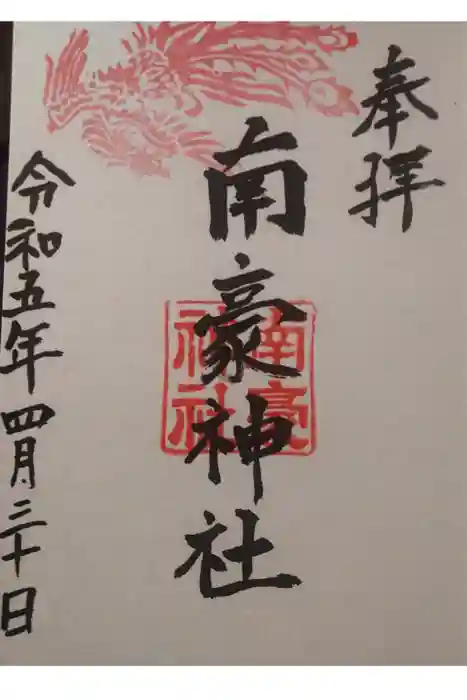 奉拝
南豪神社
南豪
神社
令和五年四月三十日